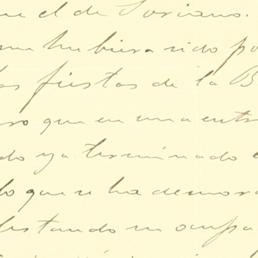 ue el de Soriano.
me hubiera sido po
las fiestas de la B
ro que en una entr
do ya terminado e
lo que se ha demora
festando su ocupa